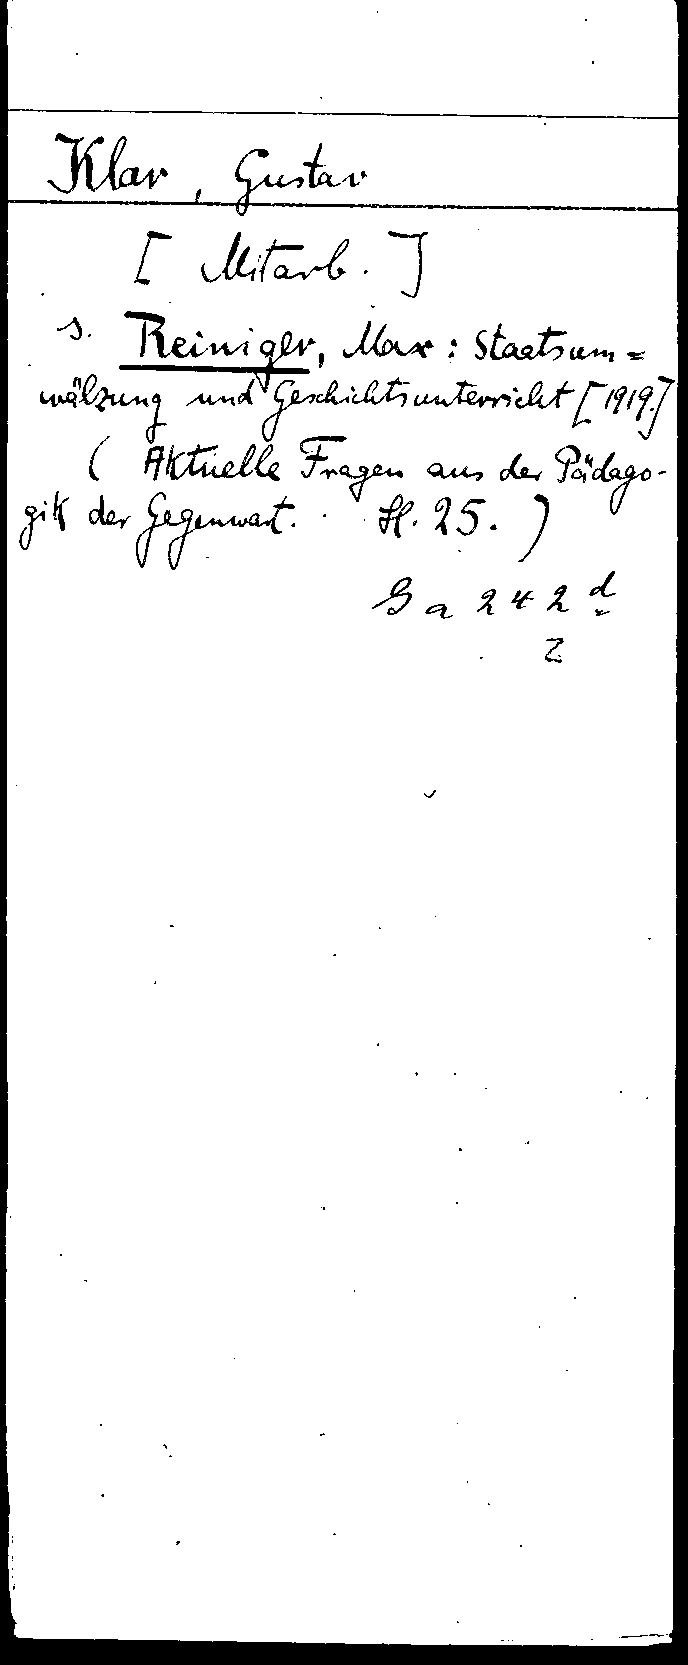 Klar, Gustav
[ Mitarb. ]
s. Reiniger, Max: Staatsum=
wälzung und Geschichtsunterricht [1919.]
( Aktuelle Fragen aus der Pädago-
gik der Gegenwart. H. 25. )
Ga 242 d
Z